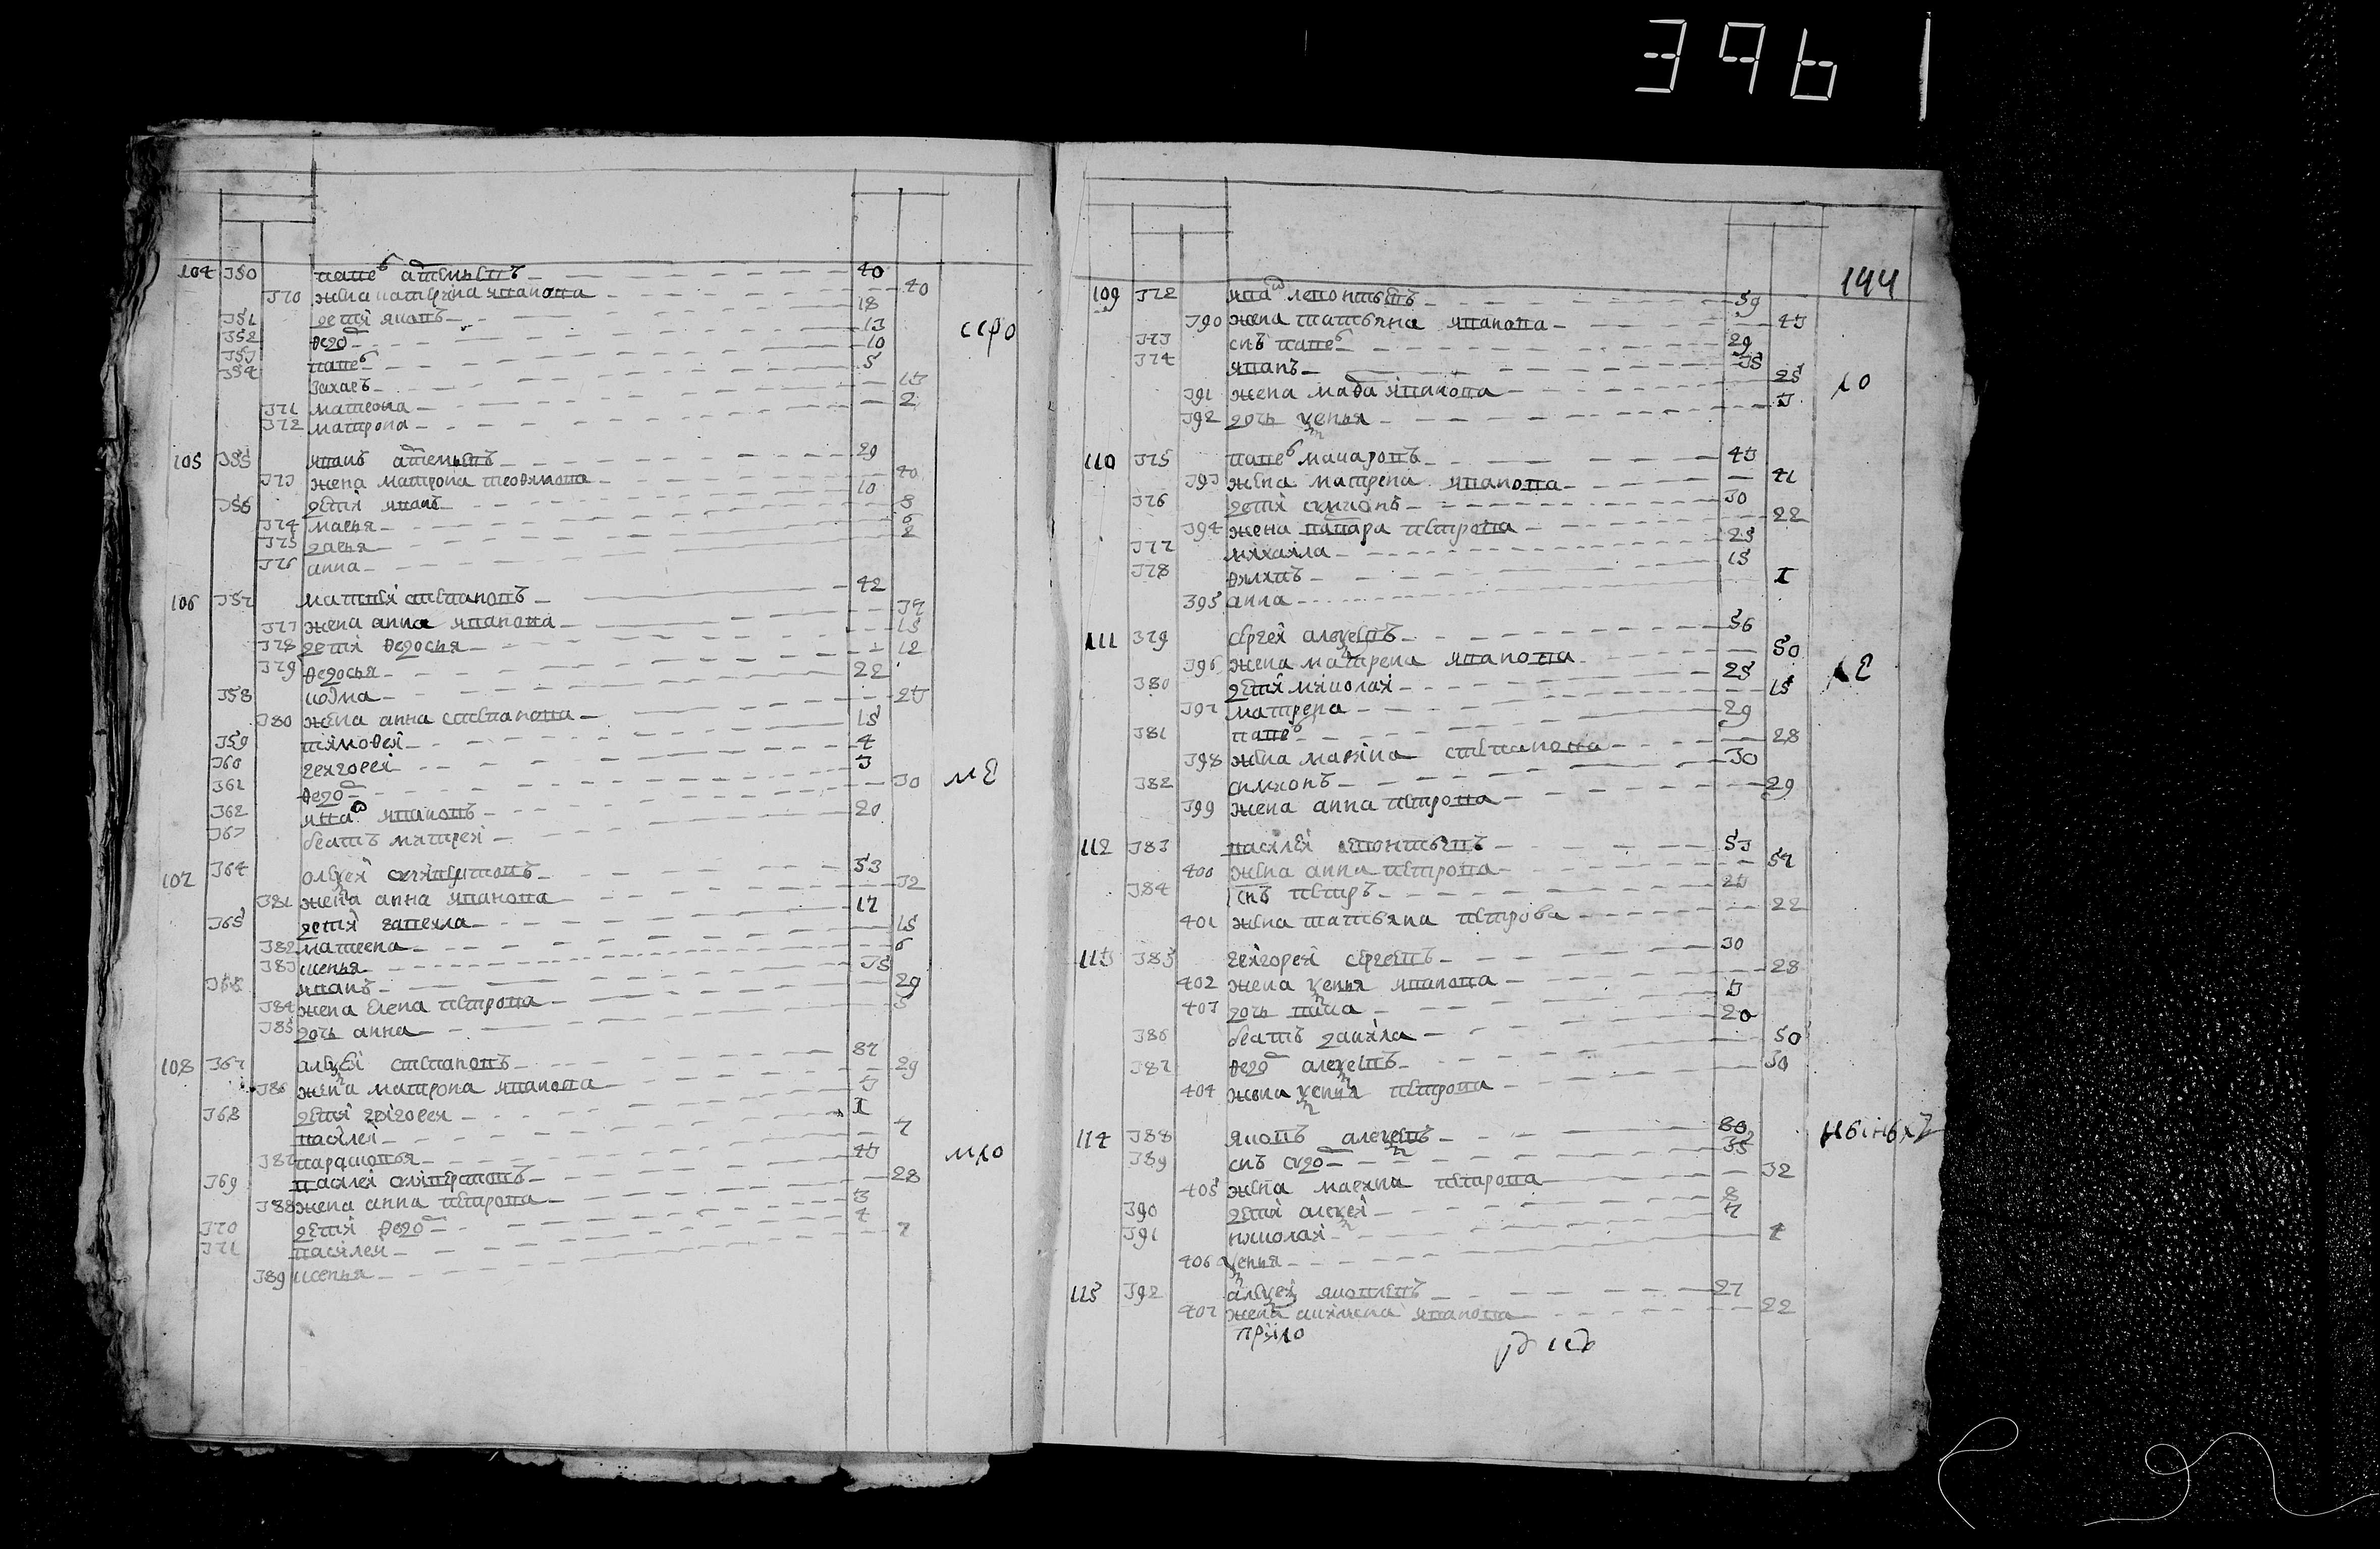 396
104 350 павеⷧ аѳеньевъ 40
370 жена катерина иванова 40
351 дети яковъ 18
352 ѳедоⷬ 13
353 павеⷧ 10
354 захаръ 5
371 матрона 13
372 матрона 2
105 355 иванъ 29
373 жена матрона 40
356 дети иванъ 10
374 марья 8
375 дарья 6
376 анна 2
106 357 матвей степановъ 42
377 жена анна иванова
378 дети ѳедосья 15
379 ѳедосья 12
358 козма 22
380 жена анна степанова 23
359 тимоѳей 15
360 григорей 4
361 ѳедоⷬ 3
362 иванъ 30
363 братъ
20
ме
107 364 алеѯей 53
381 жена анна иванова 32
365 дети гаврила 17
382 матрена 15
383 ксенья 6
366 иванъ 35
384 жена елена петрова 29
385 дочь анна 5
108 367 алеѯей степановъ 37
386 жена матрона иванова 29
368 дети григорей 3
василей 1
387 парасковья 7
369 василей 43
388 жена анна петрова 28
370 дети ѳедоⷬ 3
371 василей 4
389 ксенья 7
194
109 372 иваⷩ леонтьевъ 59
390 жена татьяна иванова 43
373 снъ павеⷧ 29
374 иванъ 35
391 жена иванова 25
392 дочь ѯенья 3
110 375 павеⷧ макаровъ 43
393 жена матрена иванова 41
376 дети симионъ 30
394 жена петрова 22
377 михаила 25
378 ѳилипъ 15
395 анна 1
111 379 сергей алеѯеевъ 56
396 жена матрена иванова 50
380 дети николай 25
397 матрена 15
381 павеⷧ 29
398 жена марина степанова 28
382 симионъ 30
399 жена анна петрова 29
112 383 василей леонтьевъ 53
400 жена анна петрова 57
384 снъ петръ 23
401 жена татьяна петрова 22
113 385 григорей сергеевъ 30
402 жена ѯенья иванова 28
403 дочь 3
386 братъ данила 20
387 ѳедоⷬ алеѯеевъ 50
404 жена ѯенья петрова 50
114 388 яковъ алеѯеевъ 80
389 снъ 35
405 жена марина петрова 32
390 дети алеѯей 8
391 николай 4
406 ѯенья 4
115 392 алеѯей яковлевъ 27
407 жена акилина иванова 22